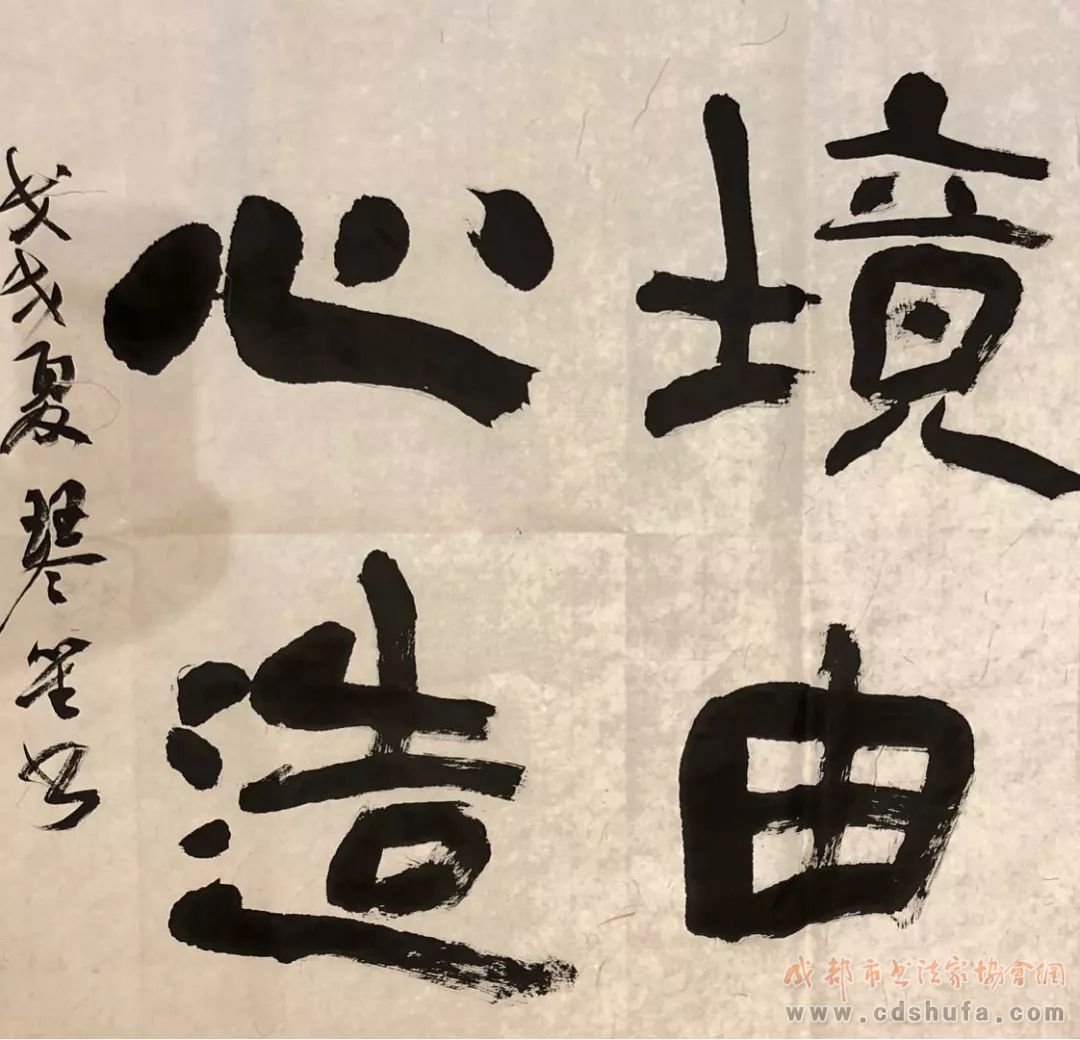 境由
心造
戊戌夏琴笙书
成都市书法家協會網
www.cdshufa.com